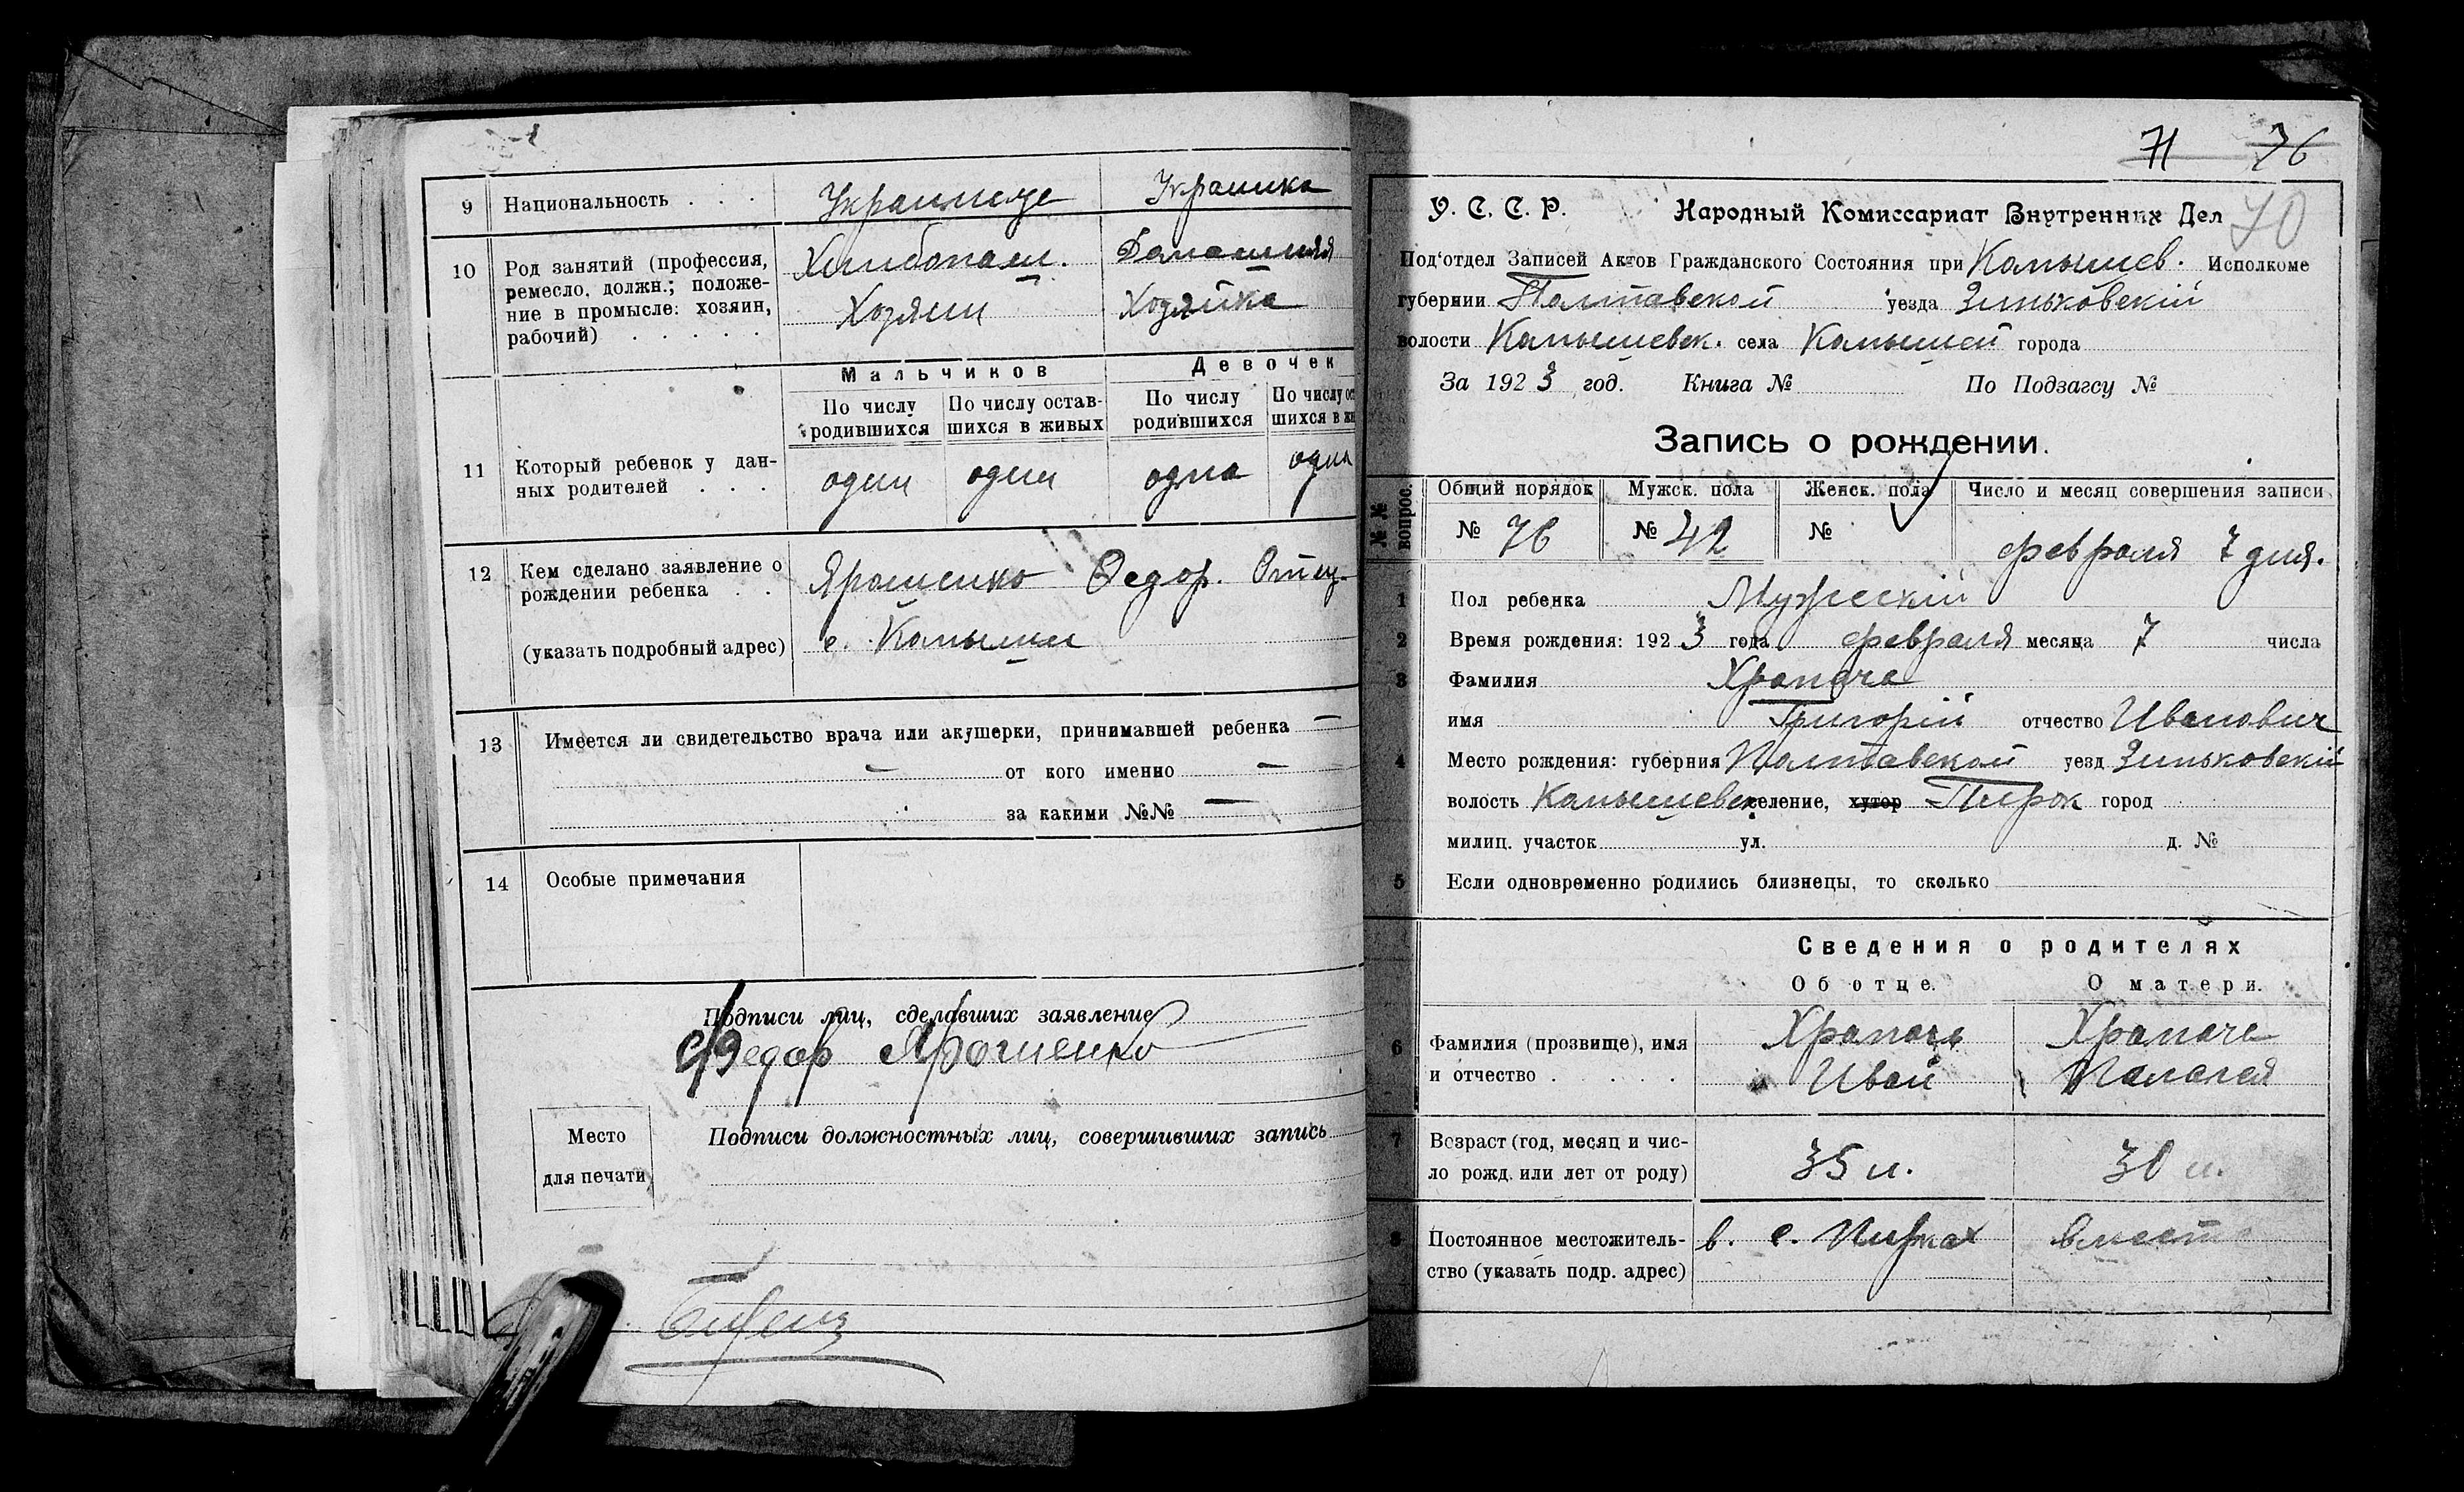 9 Национальность . . . Украинце Украинка
10 Род занятий (профессия, ремесло, должн.; положение в промысле: хозяин, рабочий) . . . . .
Домашняя
Хозяин Хозяйка
Мальчиков Девочек
По числу родившихся По числу оставшихся в живых По числу родившихся
11 Который ребенок у данных родителей . . . один один одна одна
12 Кем сделано заявление о рождении ребенка . . Ярошенко Федор. Отец.
(указать подробный адрес) с. Камыши
13 Имеется ли свидетельство врача или акушерки, принимавшей ребенка —
— от кого именно —
за какими №№ —
14 Особые примечания
Подписи лиц, сделавших заявление
Федор Ярошенко
Место для печати
Подписи должностных лиц, совершивших запись
71 76
У. С. С. Р. Народный Комиссариат Внутренних Дел 70
Под'отдел Записей Актов Гражданского Состояния при Камышев. Исполкоме
губернии Полтавской уезда Зиньковскій
волости Камышевск. села Камышей города
За 1923 год. Книга № По Подзагсу №
Запись о рождении.
№№ вопрос. Общий порядок Мужск. пола Женск. пола Число и месяц совершения записи
№ 76 № 42 № февраля 7 дня.
1 Пол ребенка Мужескій
2 Время рождения: 1923 года февраля месяца 7 числа
3 Фамилия Храпача
имя Григорій отчество Иванович
4 Место рождения: губерния Полтавской уезд Зиньковскій
волость Камышевск селение, хутор Пирок город
милиц. участок ул. д. №
5 Если одновременно родились близнецы, то сколько
Сведения о родителях
Об отце. О матери.
6 Фамилия (прозвище), имя и отчество . . . . Храпачь Иван Храпаче Палагея
7 Возраст (год, месяц и число рожд. или лет от роду) 35 л. 30 л.
8 Постоянное местожительство (указать подр. адрес) в. с. Пирках вместе